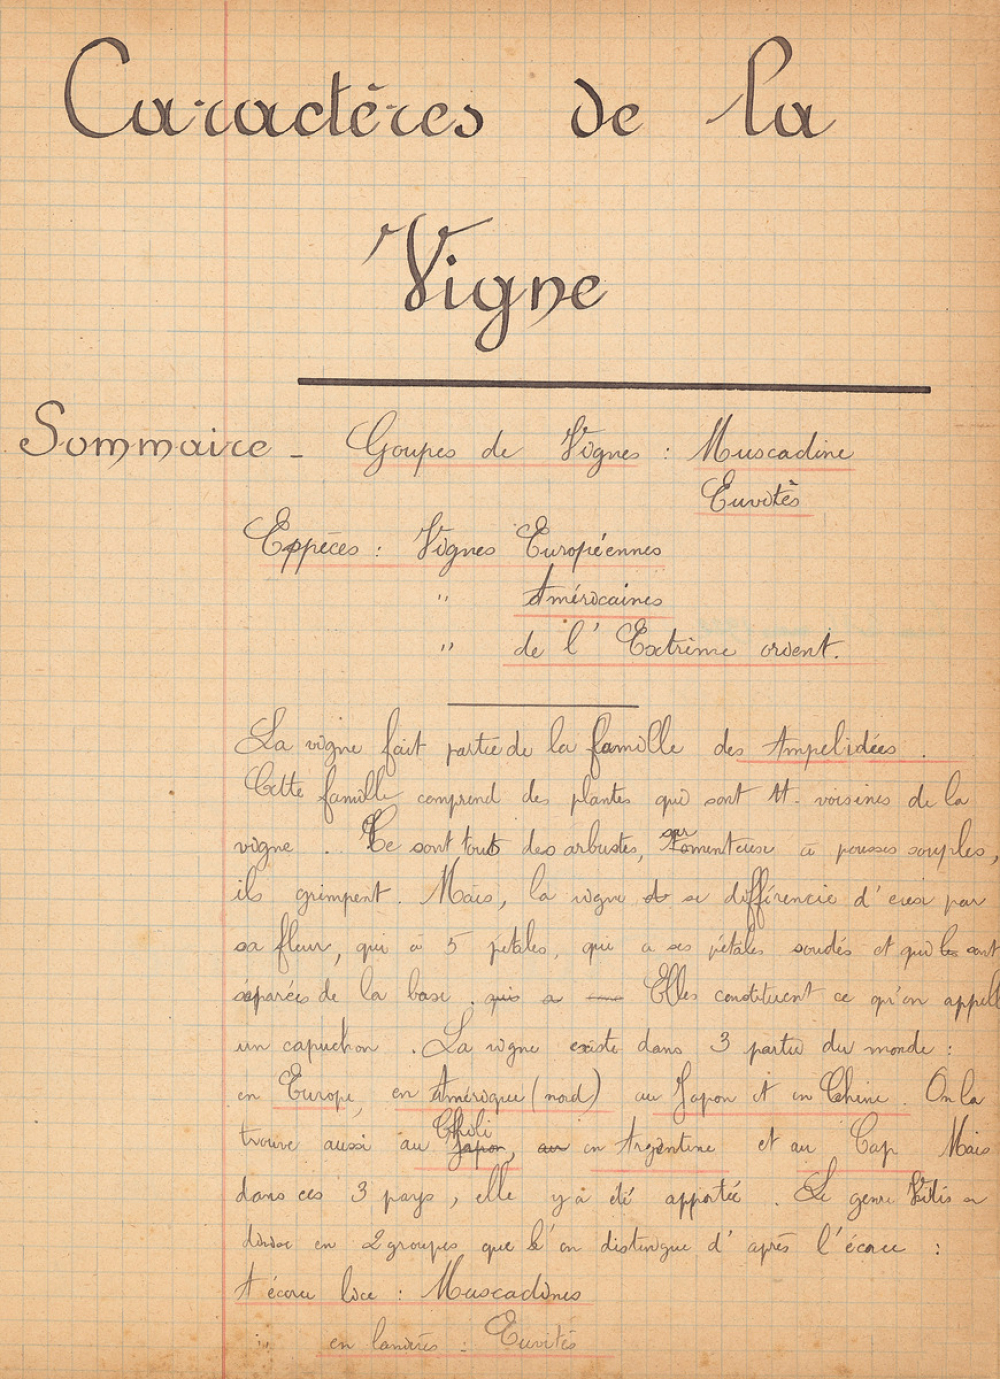 Caractères de la
Vigne
Sommaire - Goupes de Vignes : Muscadine
Euvitès
Espèces : Vignes Européennes
" Américaines
" de l' Extrême orient.
La vigne fait partie de la famille des Ampelidées .
Cette famille comprend des plantes qui sont tt. voisines de la
vigne . Ce sont touts des arbustes, sarmenteuse à pousses souples,
ils grimpent. Mais, la vigne se différencie d' eux par
sa fleur, qui a 5 pétales, qui a ses pétales soudés et qui les sont
séparées de la base . qui a Elles constituent ce qu'on appell
un capuchon . La vigne existe dans 3 partie du monde :
en Europe, en Amérique (nord) au Japon et en Chine . On la
trouve aussi au Japon Chili, au en Argentine et au Cap Mais
dans ces 3 pays, elle y a été apportée . Le genre Vitis a
divise en 2 groupes que l'on distingue d' après l'écorce :
A écorce lice : Muscadines
" en lanières : Euvitès